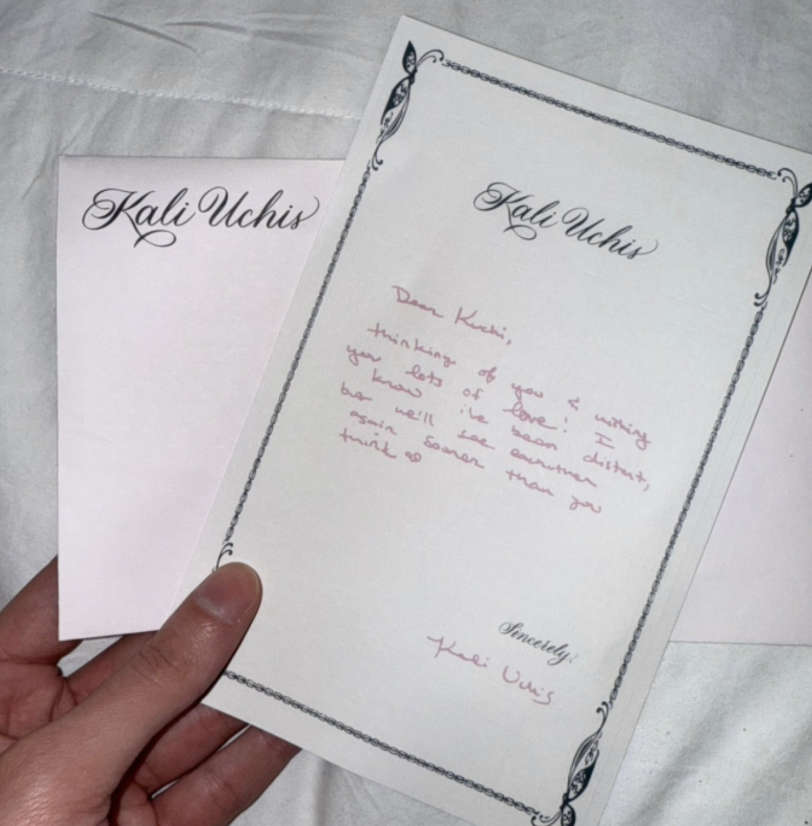 Kali Uchis
Kali Uchis
Dear Kuchi,
thinking of you & wishing
you lots of love! I
know i've been distant,
but we'll see eachother
again sooner than you
think ∞
Sincerely,
Kali Uchis